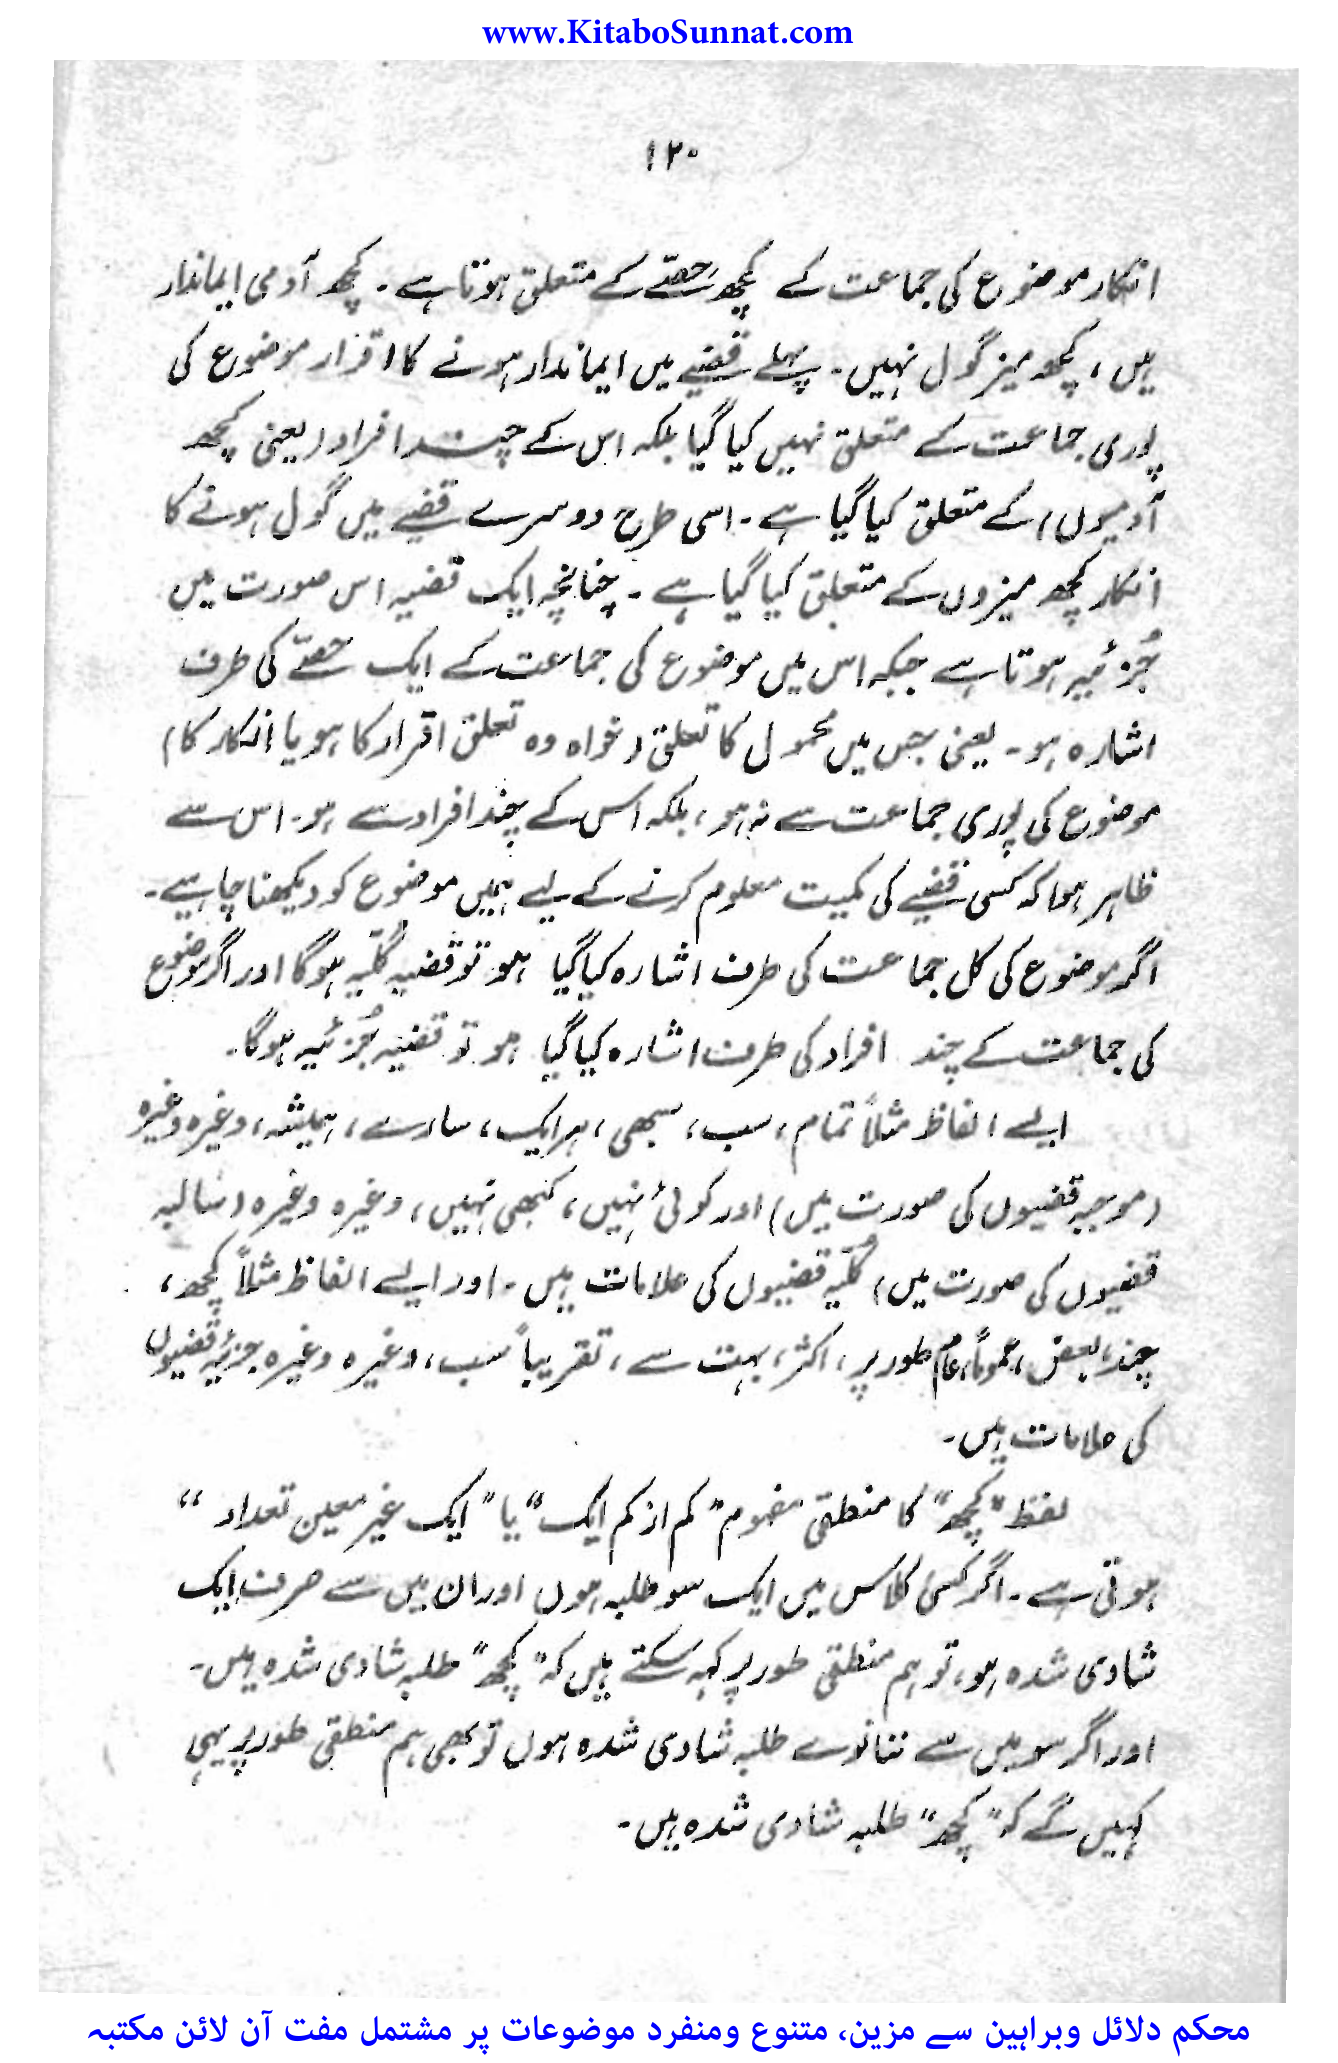 www.KitaboSunnat.com
۱۲۰
انکار موضوع کی جماعت کے کچھ حصّے کے متعلق ہوتا ہے ۔ کچھ آدمی ایماندار
ہیں ، کچھ میز گول نہیں ۔ پہلے قضیے میں ایماندار ہونے کا اقرار موضوع کی
پوری جماعت کے متعلق نہیں کیا گیا بلکہ اس کے چند افراد (یعنی کچھ
آدمیوں) کے متعلق کیا گیا ہے ۔ اسی طرح دوسرے قضیے میں گول ہونے کا
انکار کچھ میزوں کے متعلق کیا گیا ہے ۔ چنانچہ ایک قضیہ اس صورت میں
جُزئیہ ہوتا ہے جبکہ اس میں موضوع کی جماعت کے ایک حصّے کی طرف
اشارہ ہو ۔ یعنی جس میں محمول کا تعلق (خواہ وہ تعلق اقرار کا ہو یا انکار کا)
موضوع کی پوری جماعت سے نہ ہو ، بلکہ اس کے چند افراد سے ہو ۔ اس سے
ظاہر ہوا کہ کسی قضیے کی کمیت معلوم کرنے کے لیے ہمیں موضوع کو دیکھنا چاہیے ۔
اگر موضوع کی کل جماعت کی طرف اشارہ کیا گیا ہو تو قضیہ کُلّیہ ہوگا اور اگر موضوع
کی جماعت کے چند افراد کی طرف اشارہ کیا گیا ہو تو قضیہ جُزئیہ ہوگا ۔
ایسے الفاظ مثلاً تمام ، سب ، سبھی ، ہر ایک ، سارے ، ہمیشہ ، وغیرہ وغیرہ
(موجبہ قضیوں کی صورت میں) اور کوئی نہیں ، کبھی نہیں ، وغیرہ وغیرہ (سالبہ
قضیوں کی صورت میں) کُلّیہ قضیوں کی علامات ہیں ۔ اور ایسے الفاظ مثلاً کچھ ،
چند ، بعض ، عموماً ، عام طور پر ، اکثر ، بہت سے ، تقریباً سب ، وغیرہ وغیرہ جزئیہ قضیوں
کی علامات ہیں ۔
لفظ ”کچھ“ کا منطقی مفہوم ”کم از کم ایک“ یا ”ایک غیر معین تعداد“
ہوتی ہے ۔ اگر کسی کلاس میں ایک سو طلبہ ہوں اور ان میں سے صرف ایک
شادی شدہ ہو ، تو ہم منطقی طور پر کہہ سکتے ہیں کہ ”کچھ“ طلبہ شادی شدہ ہیں ۔
اور اگر سو میں سے ننانوے طلبہ شادی شدہ ہوں تو بھی ہم منطقی طور پر یہی
کہیں گے کہ ”کچھ“ طلبہ شادی شدہ ہیں ۔
محکم دلائل وبراہین سے مزین، متنوع ومنفرد موضوعات پر مشتمل مفت آن لائن مکتبہ